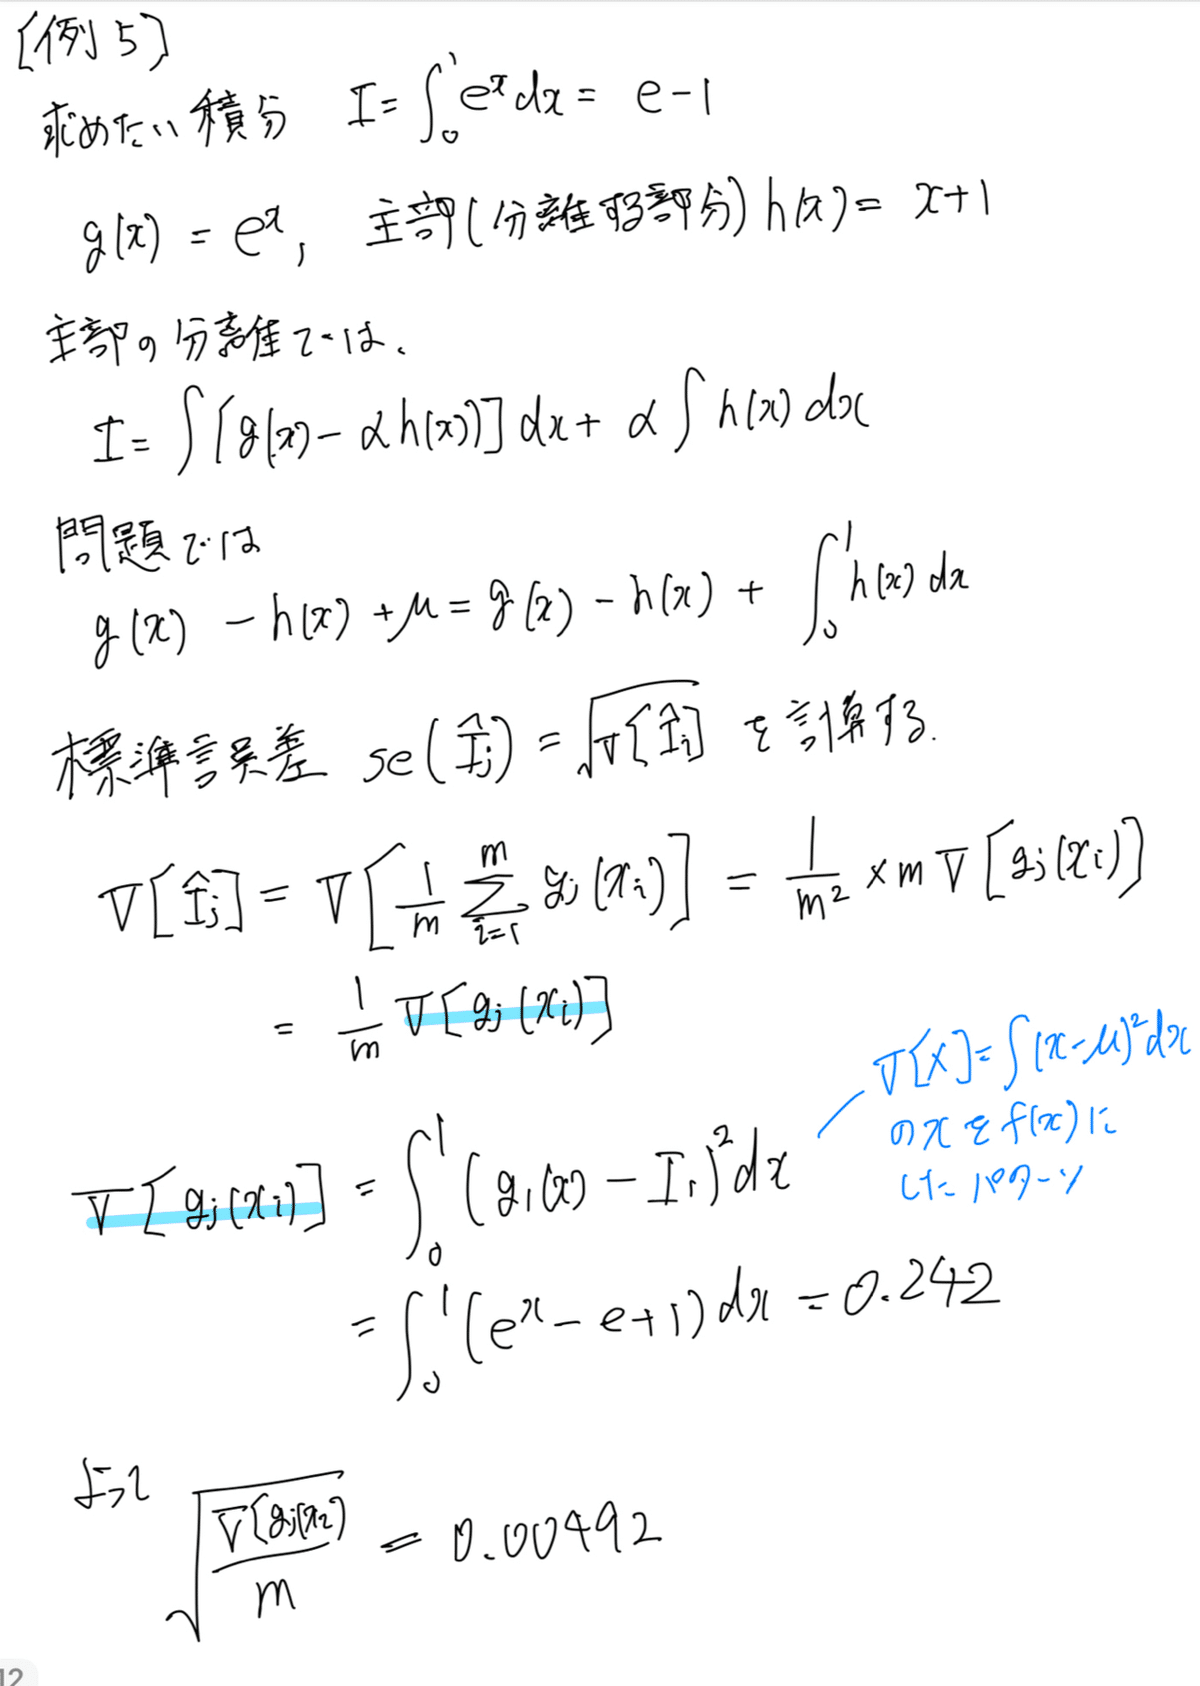 [例5]
求めたい積分 I = ∫₀¹ eˣdx = e-1
g(x) = eˣ, 主部(分離する部分) h(x) = x+1
主部の分離では、
I = ∫[g(x) - αh(x))] dx + α∫h(x) dx
問題では
g(x) - h(x) + μ = g(x) - h(x) + ∫₀¹ h(x) dx
標準誤差 se(Îj) = √V[Îj] を計算する.
V[Îj] = V[1/m Σᵢ₌₁ᵐ gj(xi)] = 1/m² × m V[gj(xi)]
= 1/m V[gj(xi)]
V[X] = ∫(x-μ)²dx
のxをf(x)に
したパターン
V[gj(xi)] = ∫₀¹ (g₁(x) - I₁)²dx
= ∫₀¹ (eˣ - e+1) dx = 0.242
よって
√(V[gj(x₂)/m) = 0.00492
12